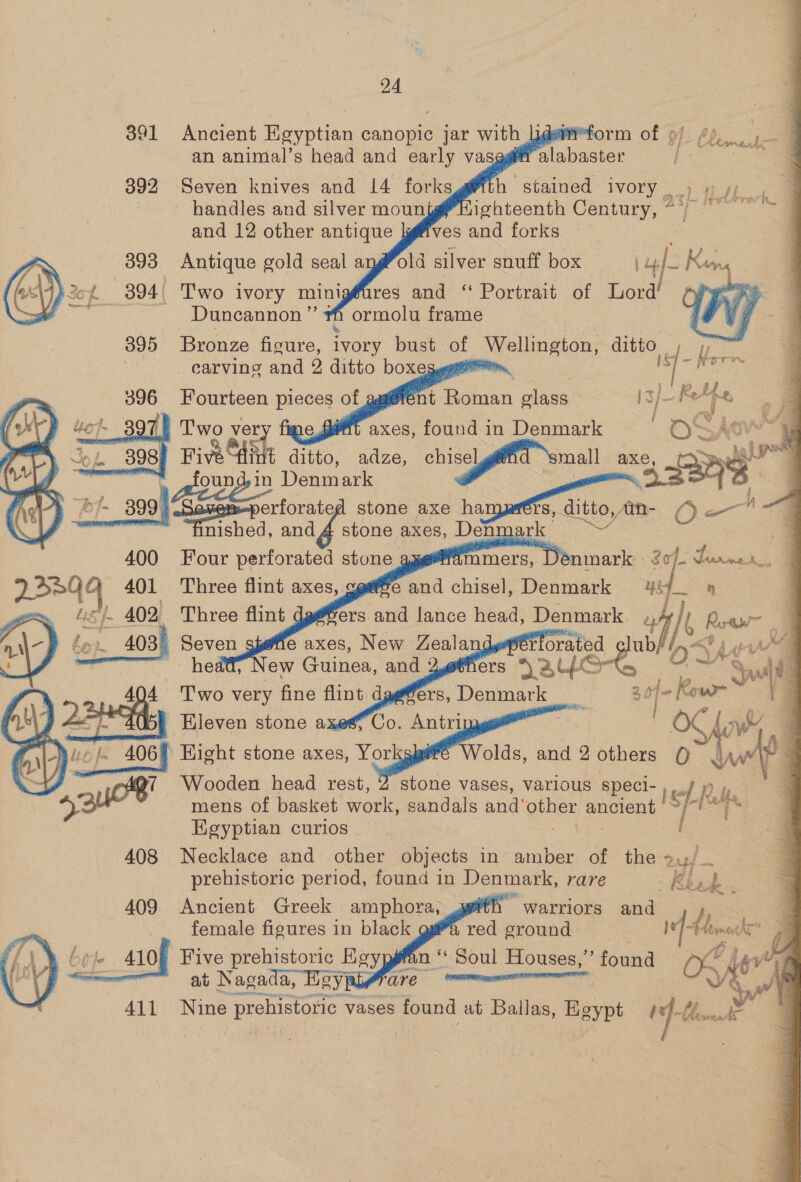 24
391 Ancient Egyptian canopic jar with lid in form of
an animal's head and early vase in alabaster
392 Seven knives and 14 forks with stained ivory
handles and silver mounts, Eighteenth Century,
and 12 other antique knives and forks
393 Antique gold seal and old silver snuff box 14/-
30/- 394 Two ivory miniatures and “Portrait of Lord
Duncannon” in ormolu frame
395 Bronze figure, ivory bust of Wellington, ditto 15/-
carving and 2 ditto boxes
396 Fourteen pieces of ancient Roman glass 13/-
40/- 397 Two very fine flint axes, found in Denmark
30/- 398 Five flint ditto, adze, chisel and small axe,
found in Denmark 23398
399 Seven perforated stone axe hammers, ditto, un-
finished, and 4 stone axes, Denmark
400 Four perforated stone axe hammers, Denmark 30/-
23399 401 Three flint axes, gouge and chisel, Denmark 45/- "
45/- 402 Three flint daggers and lance head, Denmark
60/- 403 Seven stone axes, New Zealand, perforated club
head, New Guinea, and 2 others
404 Two very fine flint daggers, Denmark 30/-
Eleven stone axes, Co. Antrim
40/- 406 Eight stone axes, Yorkshire Wolds, and 2 others
Wooden head rest, 2 stone vases, various speci-
mens of basket work, sandals and other ancient 15/-
Egyptian curios
408 Necklace and other objects in amber of the
prehistoric period, found in Denmark, rare
409 Ancient Greek amphora, with warriors and
female figures in black on a red ground
60/- 410 Five prehistoric Egyptian “Soul Houses,” found
at Nagada, Egypt, rare
411 Nine prehistoric vases found at Ballas, Egypt